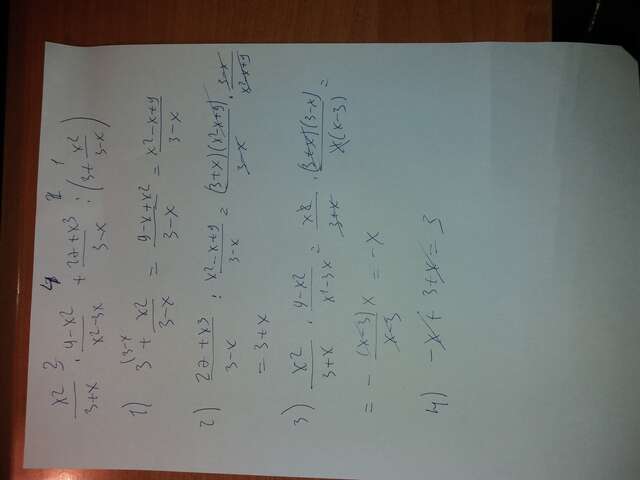 3 4 2 1
x2/3+x · 9-x2/x2-3x + 27+x3/3-x : (3+ x2/3-x)
1) 3 (3-x + x2/3-x = 9-x+x2/3-x = x2-x+9/3-x
2) 27+x3/3-x : x2-x+9/3-x = (3+x)(x2-x+9)/3-x · 3-x/x2-x+9
= 3+x
3) x2/3+x · 9-x2/x2-3x = x2/3+x · (3+x)(3-x)/x(x-3) =
= - (x-3)x/x-3 = -x
4) -x+3+x=3